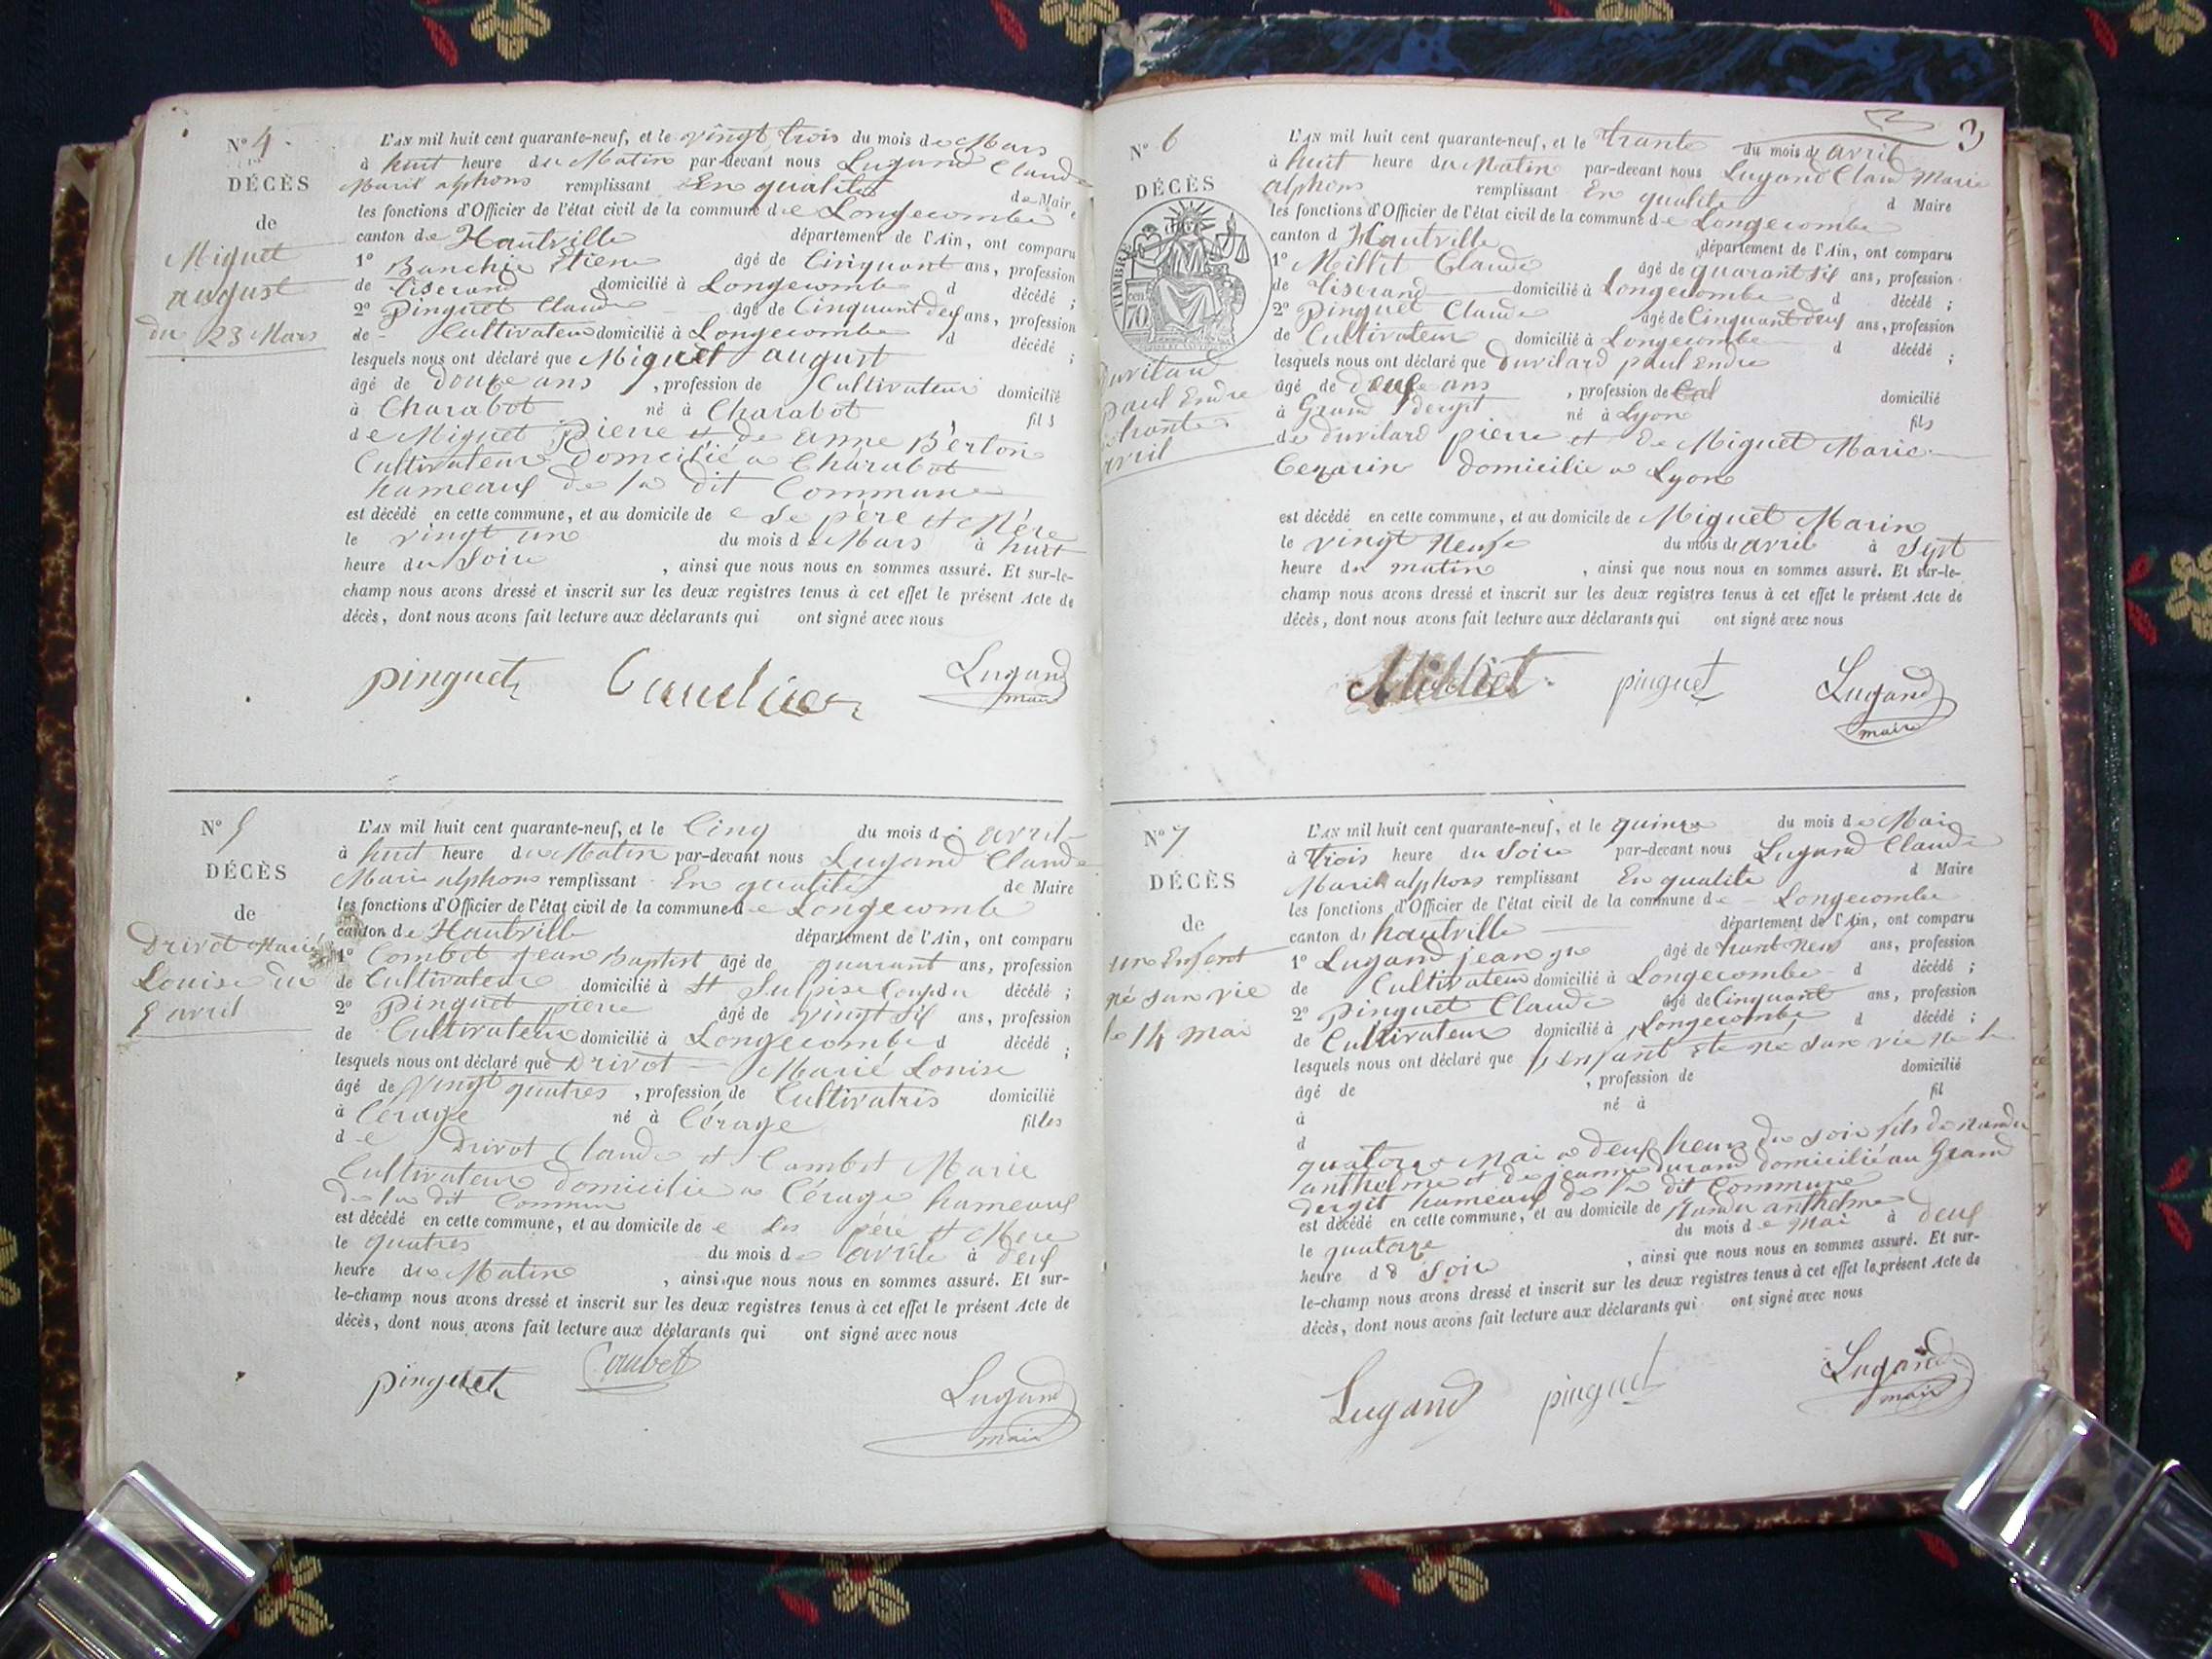 N° 4.
DÉCÈS
de
Miguet
august
du 23 Mars
L'AN mil huit cent quarante-neuf, et le vingt trois du mois de Mars
à huit heure du Matin par-devant nous Lugand Claude
Marie alphons remplissant En qualité de Maire
les fonctions d'Officier de l'état civil de la commune de Longecombe
canton de Hautville département de l'Ain, ont comparu
1° Etiene âgé de Cinquant ans, profession
de tiserand domicilié à Longecombe d décédé ;
2° Pinguet Claude âgé de Cinquant deux ans, profession
de Cultivateur domicilié à Longecombe d décédé ;
lesquels nous ont déclaré que Miguet august
âgé de douze ans, profession de Cultivateur domicilié
à Charabot né à Charabot fils
de Miguet Pierre et de anne Berton
Cultivateur Domicilié a Charabot
hameaux de la dit Commune
est décédé en cette commune, et au domicile de se père et Mère
le vingt un du mois de Mars à huit
heure du Soire, ainsi que nous nous en sommes assuré. Et sur-le-
champ nous avons dressé et inscrit sur les deux registres tenus à cet effet le présent Acte de
décès, dont nous avons fait lecture aux déclarants qui ont signé avec nous
pinguet Lugand
maire
N° 5
DÉCÈS
de
Drivot Marie
Louise du
5 avril
L'AN mil huit cent quarante-neuf, et le Cinq du mois d avril
à huit heure du Matin par-devant nous Lugand Claude
Marie alphons remplissant En qualité de Maire
les fonctions d'Officier de l'état civil de la commune de Longecombe
canton de Hautville département de l'Ain, ont comparu
1° Combet Jean Baptist âgé de quarant ans, profession
de Cultivateur domicilié à St Sulpise décédé ;
2° Pinguet pierre âgé de vingt six ans, profession
de Cultivateur domicilié à Longecombe d décédé ;
lesquels nous ont déclaré que Drivot Marié Louise
âgé de vingt quatres, profession de Cultivatris domicilié
à Cérage né à Cérage filles
de Drivot Claude et Combet Marie
Cultivateur domicilié a Cérage hameaux
de la dit Commune
est décédé en cette commune, et au domicile de les père et Mere
le quatres du mois de avrile à deux
heure du Matine, ainsi que nous nous en sommes assuré. Et sur-
le-champ nous avons dressé et inscrit sur les deux registres tenus à cet effet le présent Acte de
décès, dont nous avons fait lecture aux déclarants qui ont signé avec nous
pinguet Combet Lugand
maire
3
N° 6
DÉCÈS
TIMBRE
70
Duvilard
paul Endre
trante
avril
L'AN mil huit cent quarante-neuf, et le trante du mois de avril
à huit heure du Matin par-devant nous Lugand Claud Marie
alphons remplissant En qualité d Maire
les fonctions d'Officier de l'état civil de la commune de Longecombe
canton d Hautville département de l'Ain, ont comparu
1° Milliet Claude âgé de quarant six ans, profession
de tiserand domicilié à Longecombe d décédé ;
2° Pinguet Claude âgé de Cinquant deux ans, profession
de Cultivateur domicilié à Longecombe d décédé ;
lesquels nous ont déclaré que Duvilard paul Endre
âgé de ans, profession de domicilié
à Grand dergit né à Lyon fils
de Duvilard pierre et de Miguet Marie
Cezarin domicilié a Lyon
est décédé en cette commune, et au domicile de Miguet Marin
le vingt Neuf du mois de avril à Sept
heure du matin, ainsi que nous nous en sommes assuré. Et sur-le-
champ nous avons dressé et inscrit sur les deux registres tenus à cet effet le présent Acte de
décès, dont nous avons fait lecture aux déclarants qui ont signé avec nous
Milliet pinguet Lugand
maire
N° 7
DÉCÈS
de
un Enfant
né san vie
le 14 mai
L'AN mil huit cent quarante-neuf, et le quinze du mois de Mai
à trois heure du Soire par-devant nous Lugand Claude
Marie alphons remplissant En qualite d Maire
les fonctions d'Officier de l'état civil de la commune de Longecombe
canton de hautville département de l'Ain, ont comparu
1° Lugand jean âgé de trant Neuf ans, profession
de Cultivateur domicilié à Longecombe d décédé ;
2° Pinguet Claude âgé de Cinquant ans, profession
de Cultivateur domicilié à Longecombe d décédé ;
lesquels nous ont déclaré que l'enfant Eté né san vie Né le
âgé de, profession de domicilié
à né à fil
d
quatorze Mai a deux heur du soir fils de
anthelme et de jeanne durand domicilié au Grand
dergit hameaux de la dit Commune
est décédé en cette commune, et au domicile de anthelme
le quatorze du mois de Mai à deux
heure de soire, ainsi que nous nous en sommes assuré. Et sur-
le-champ nous avons dressé et inscrit sur les deux registres tenus à cet effet le présent Acte de
décès, dont nous avons fait lecture aux déclarants qui ont signé avec nous
Lugand pinguet Lugand
maire